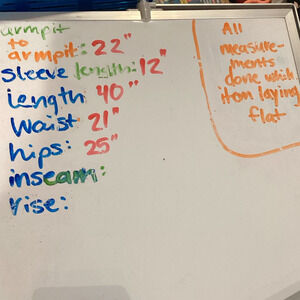 armpit
to
armpit: 22"
Sleeve length: 12"
Length 40"
Waist 21"
hips: 25"
inseam:
rise:
All
measure-
ments
done while
item laying
flat